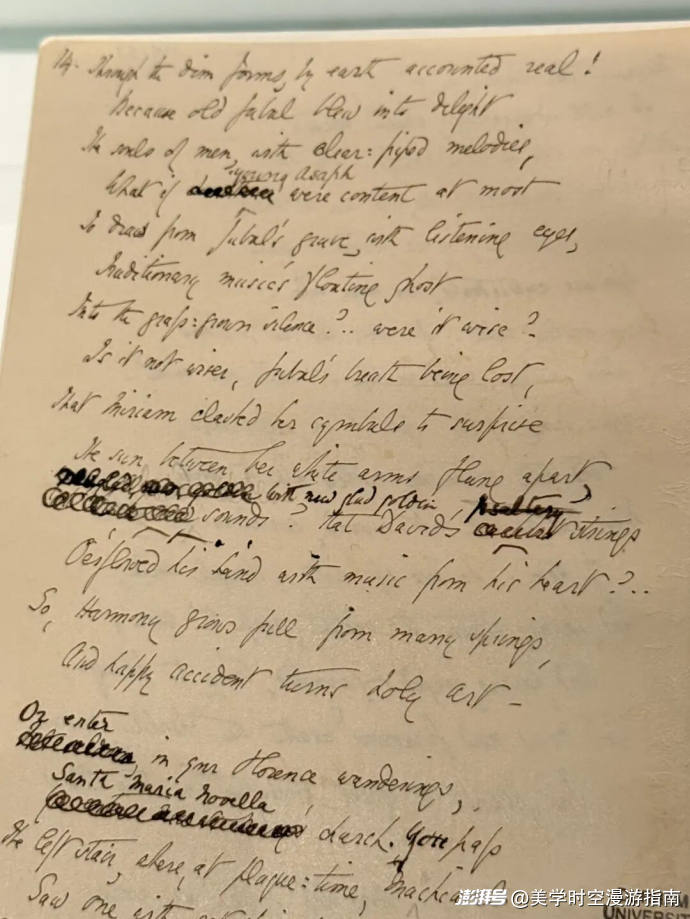 14. Through the dim forms, by earth accounted real!
Because old Jubal blew into delight
The souls of men, with clear=piped melodies,
young Asaph
What if were content at most
To draw from Jubal's grave, with listening eyes,
Traditionary music's floating ghost
Into the grass=grown silence?.. were it wise?
Is it not wiser, Jubal's breath being lost,
That Miriam clashed her cymbals to surprise
The sun between her white arms flung apart,
with new glad golden psaltery
sounds? that David's strings
O'erflowed his hand with music from his heart?..
So, Harmony grows full from many springs,
And happy accident turns holy art –
Or enter
, in your Florence wanderings,
Santa Maria Novella
church. You pass
The left stair, where, at plague=time,
Saw one with
澎湃号@美学时空漫游指南
UNIVERSI